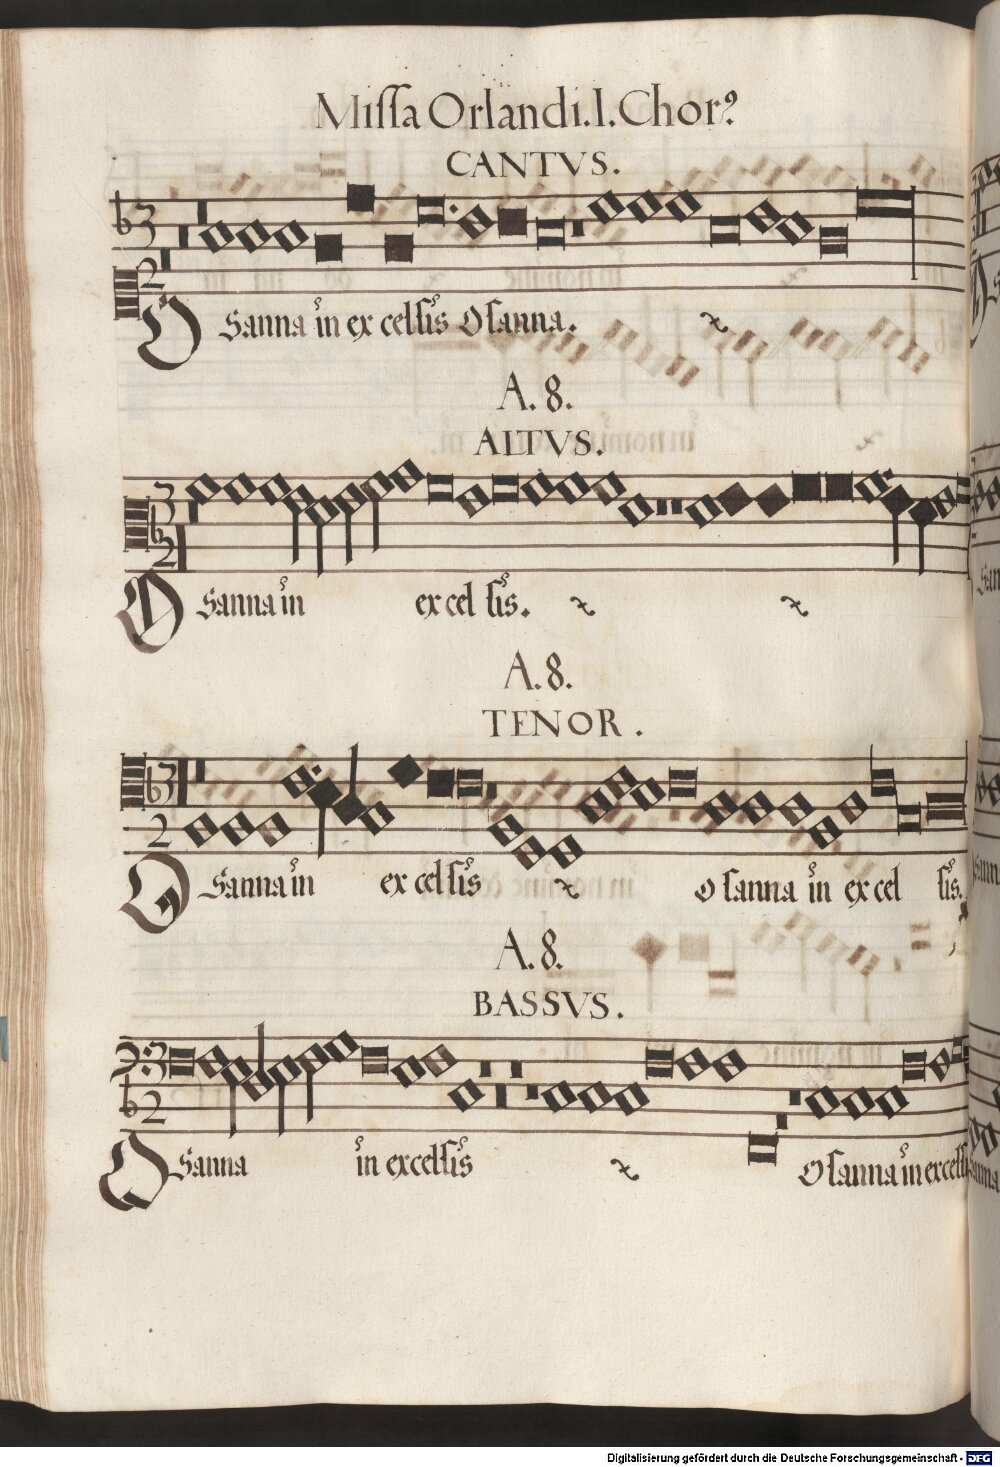 Missa Orlandi. I. Chor⁹
CANTVS.
Osanna in ex celsis Osanna.
A. 8.
ALTVS.
Osanna in ex cel sis.
A. 8.
TENOR.
Osanna in ex celsis O sanna in ex cel sis.
A. 8.
BASSVS.
Osanna in excelsis Osanna in excelsis
Digitalisierung gefördert durch die Deutsche Forschungsgemeinschaft - DFG